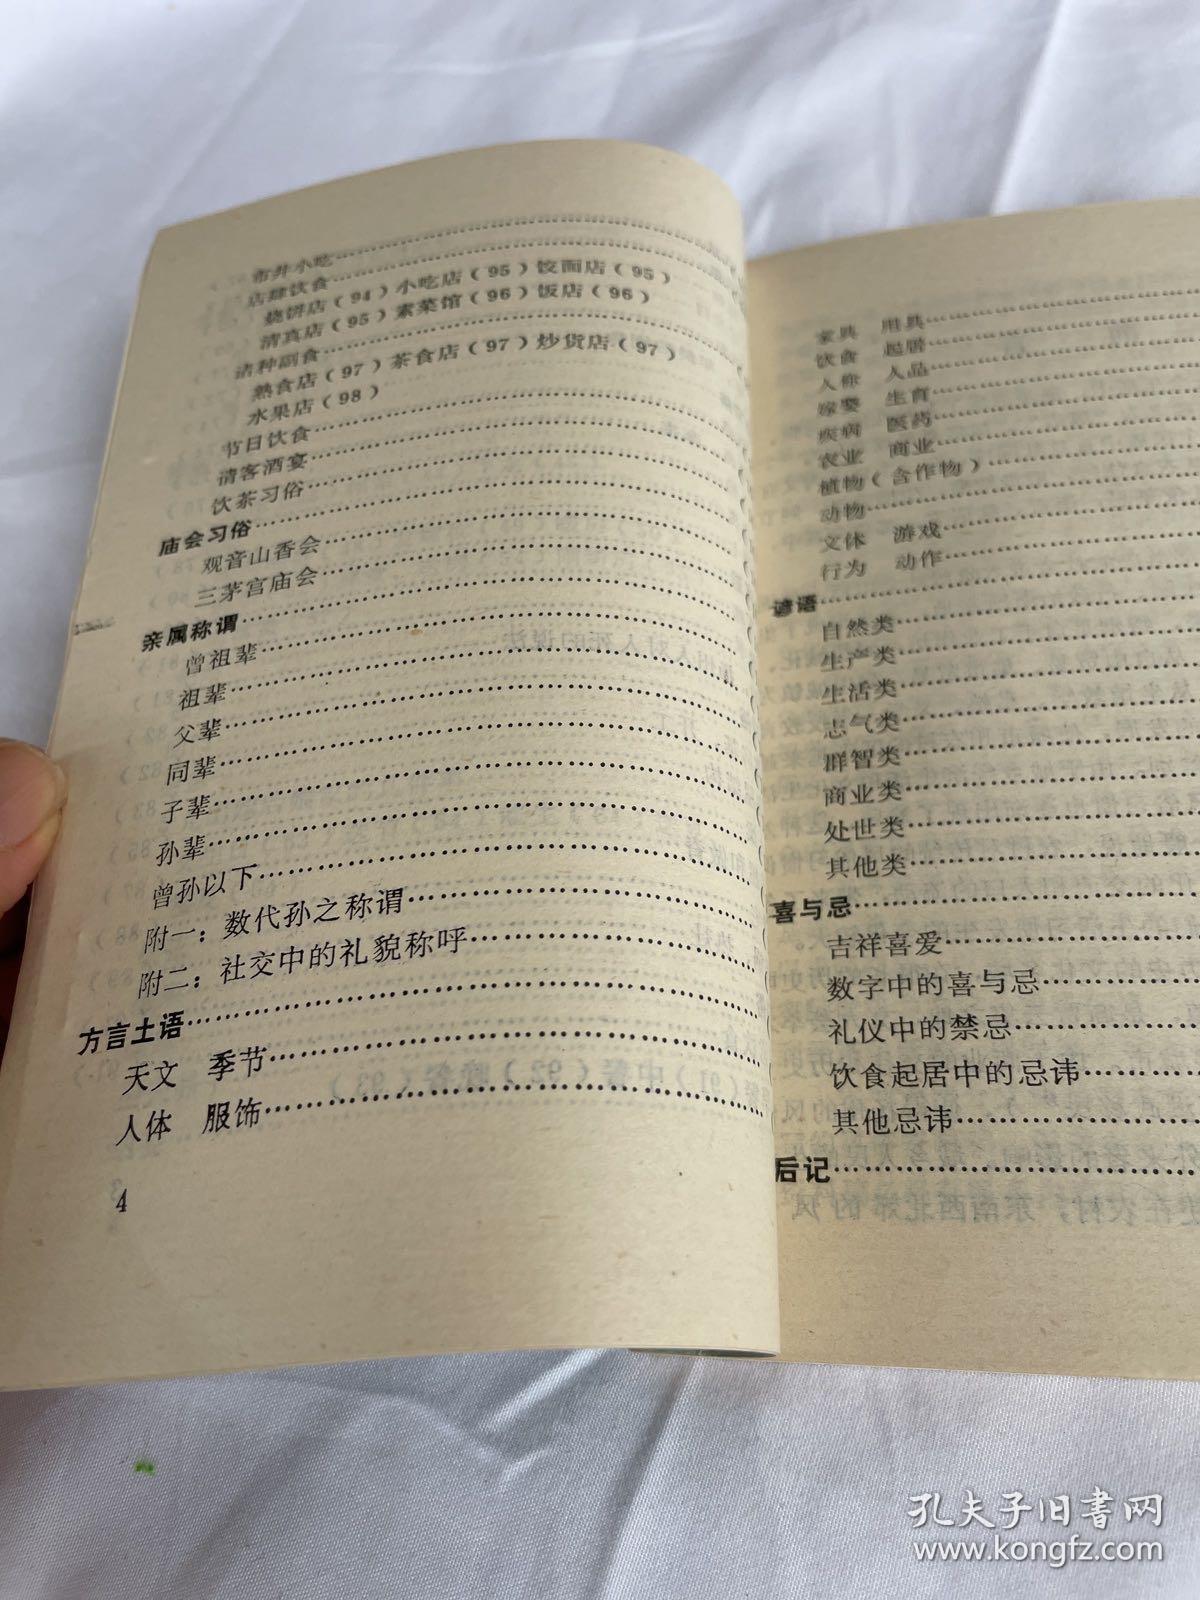 市井小吃……
店肆饮食……
烧饼店（94）小吃店（95）饺面店（95）
清真店（95）素菜馆（96）饭店（96）
诸种副食……
熟食店（97）茶食店（97）炒货店（97）
水果店（98）
节日饮食……
请客酒宴……
饮茶习俗……
庙会习俗……
观音山香会……
三茅宫庙会……
亲属称谓……
曾祖辈……
祖辈……
父辈……
同辈……
子辈……
孙辈……
曾孙以下……
附一：数代孙之称谓……
附二：社交中的礼貌称呼……
方言土语……
天文 季节……
人体 服饰……
4
家具 用具……
饮食 起居……
人称 人品……
嫁娶 生育……
疾病 医药……
农业 商业……
植物（含作物）……
动物……
文体 游戏……
行为 动作……
谚语……
自然类……
生产类……
生活类……
志气类……
群智类……
商业类……
处世类……
其他类……
喜与忌……
吉祥喜爱……
数字中的喜与忌……
礼仪中的禁忌……
饮食起居中的忌讳……
其他忌讳……
后记……
孔夫子旧书网
www.kongfz.com